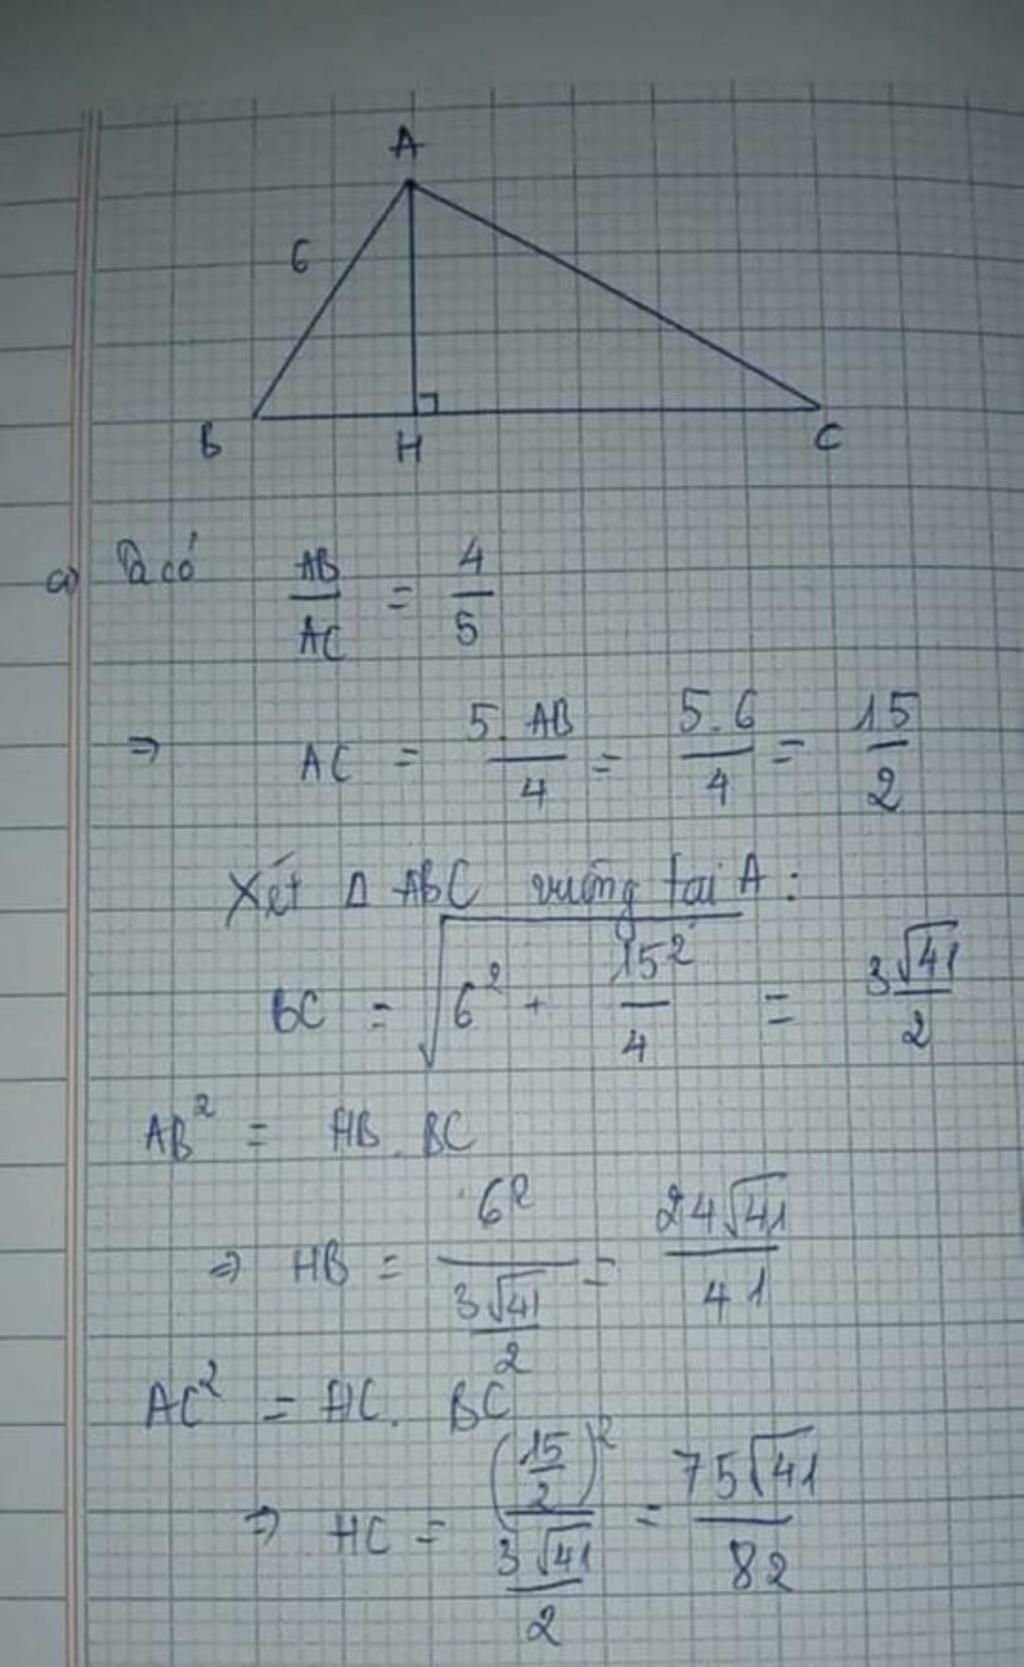 A
6
B H C
a) Ta có AB/AC = 4/5
⇒ AC = 5.AB/4 = 5.6/4 = 15/2
Xét Δ ABC vuông tại A :
BC = √(6² + 15²/4) = 3√41/2
AB² = HB . BC
⇒ HB = 6²/(3√41/2) = 24√41/41
AC² = HC . BC
⇒ HC = (15/2)²/(3√41/2) = 75√41/82